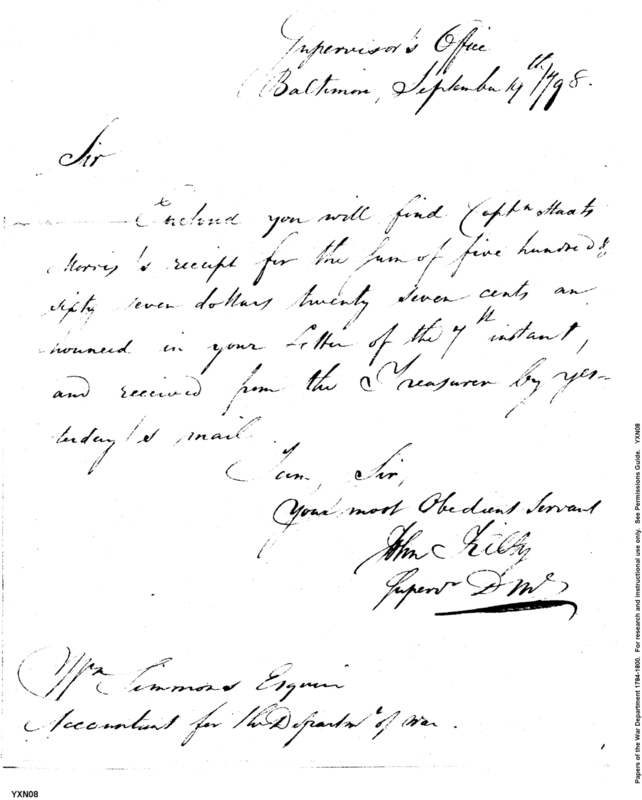 Supervisor's Office
Baltimore, September 19th 1798.
Sir
Enclosed you will find Captn Staats
Morris's receipt for the Sum of five hundred &
sixty seven dollars twenty seven cents an
nounced in your Letter of the 7th instant,
and received from the Treasurer by yes-
terday's mail.
I am, Sir,
Your most Obedient Servant
John Kilty
Supervr D Md
Wm Simmons Esquire
Accountant for the Departmt of War.
YXN08
Papers of the War Department 1784-1800. For research and instructional use only. See Permissions Guide. YXN08